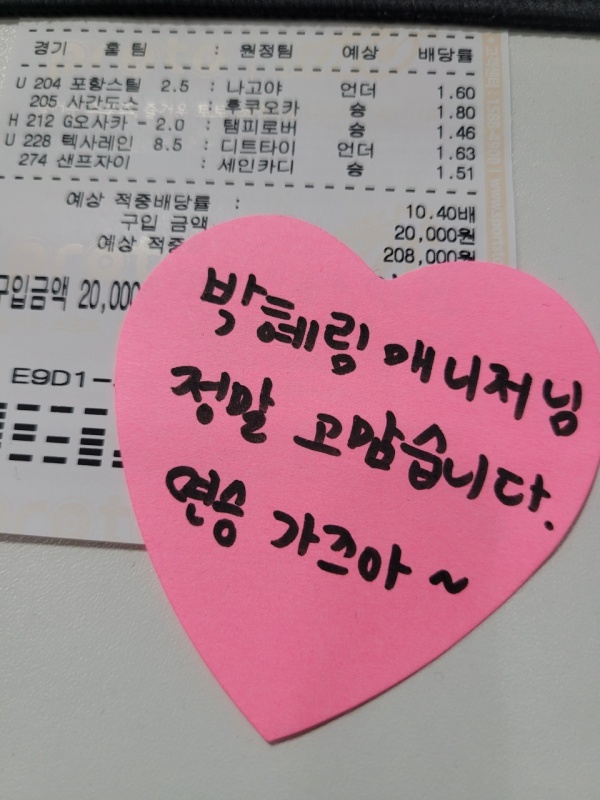 경기 홈팀 : 원정팀 예상 배당률
U 204 포항스틸 2.5 : 나고야 언더 1.60
205 사간도스 : 후쿠오카 승 1.80
H 212 G오사카 - 2.0 : 탬피로버 승 1.46
U 228 텍사레인 8.5 : 디트타이 언더 1.63
274 샌프자이 : 세인카디 승 1.51
예상 적중배당률 : 10.40배
구입 금액 20,000원
예상 적중 208,000원
구입금액 20,000
E9D1-
박혜림 매니저님
정말 고맙습니다.
연승 가즈아~